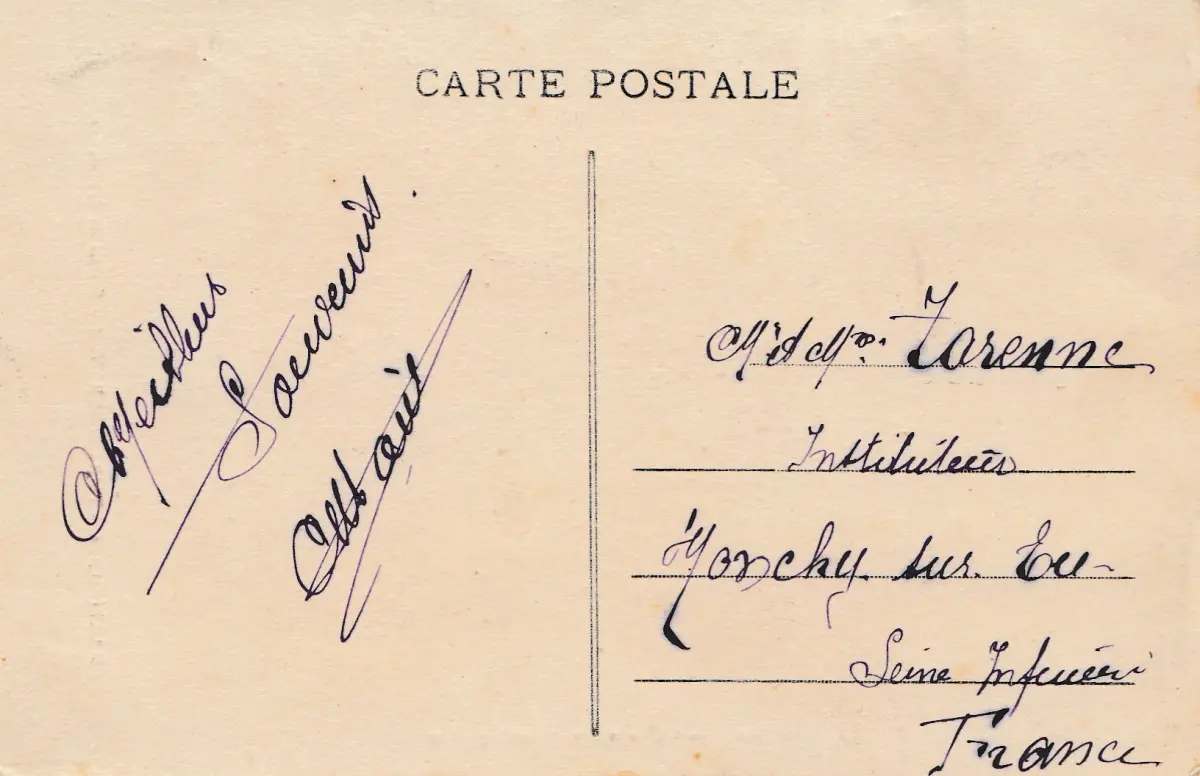 CARTE POSTALE
Meilleur
Souvenir
Mr et Mme Larenne
Instituteur
Monchy sur Eu
Seine Inférieure
France